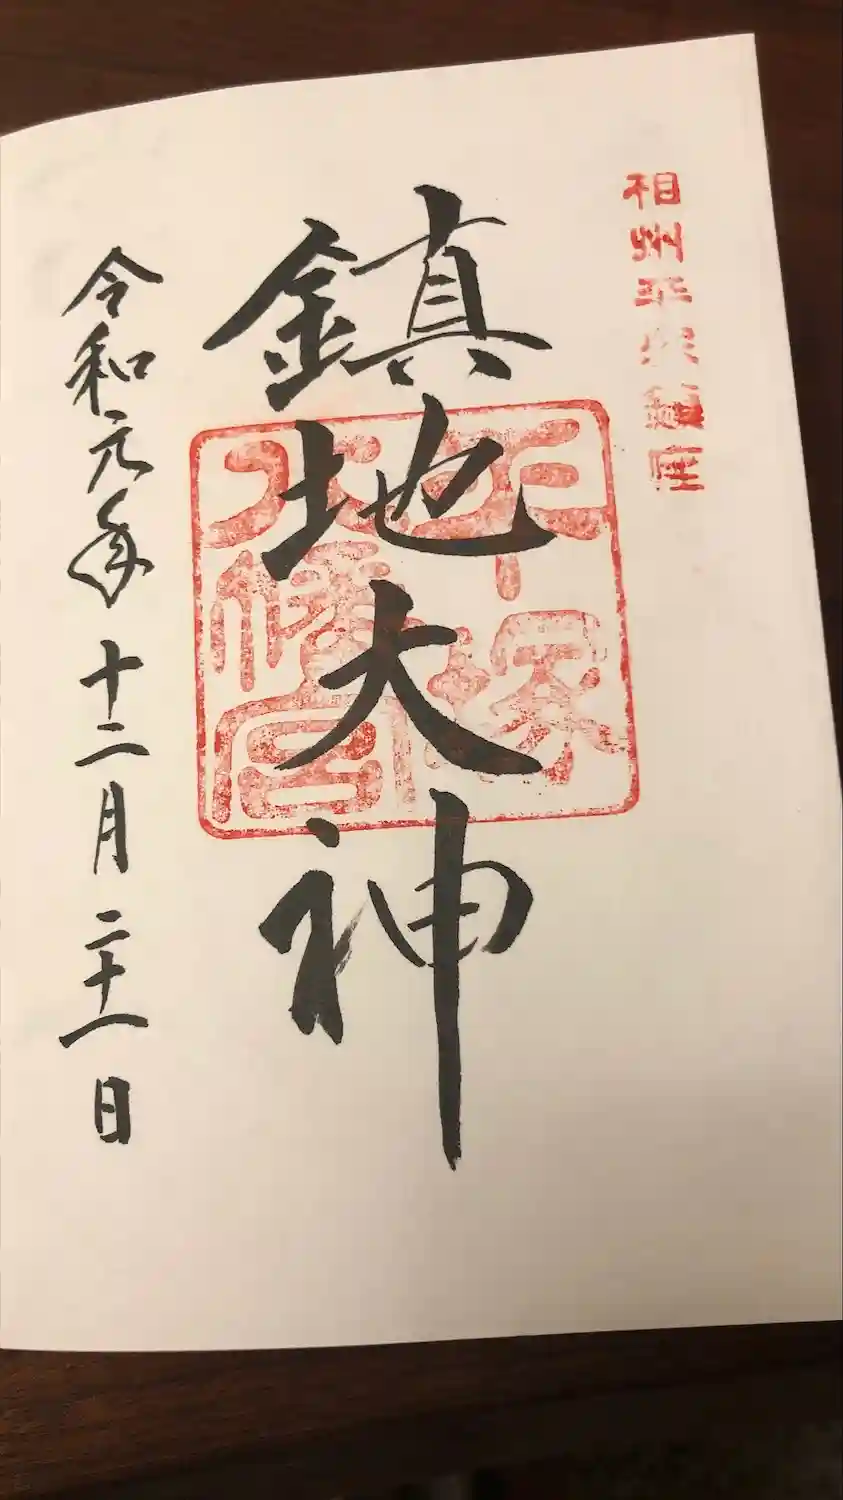 相州平塚鎮座
鎮地大神
平塚
八幡宮
令和元年十二月二十一日